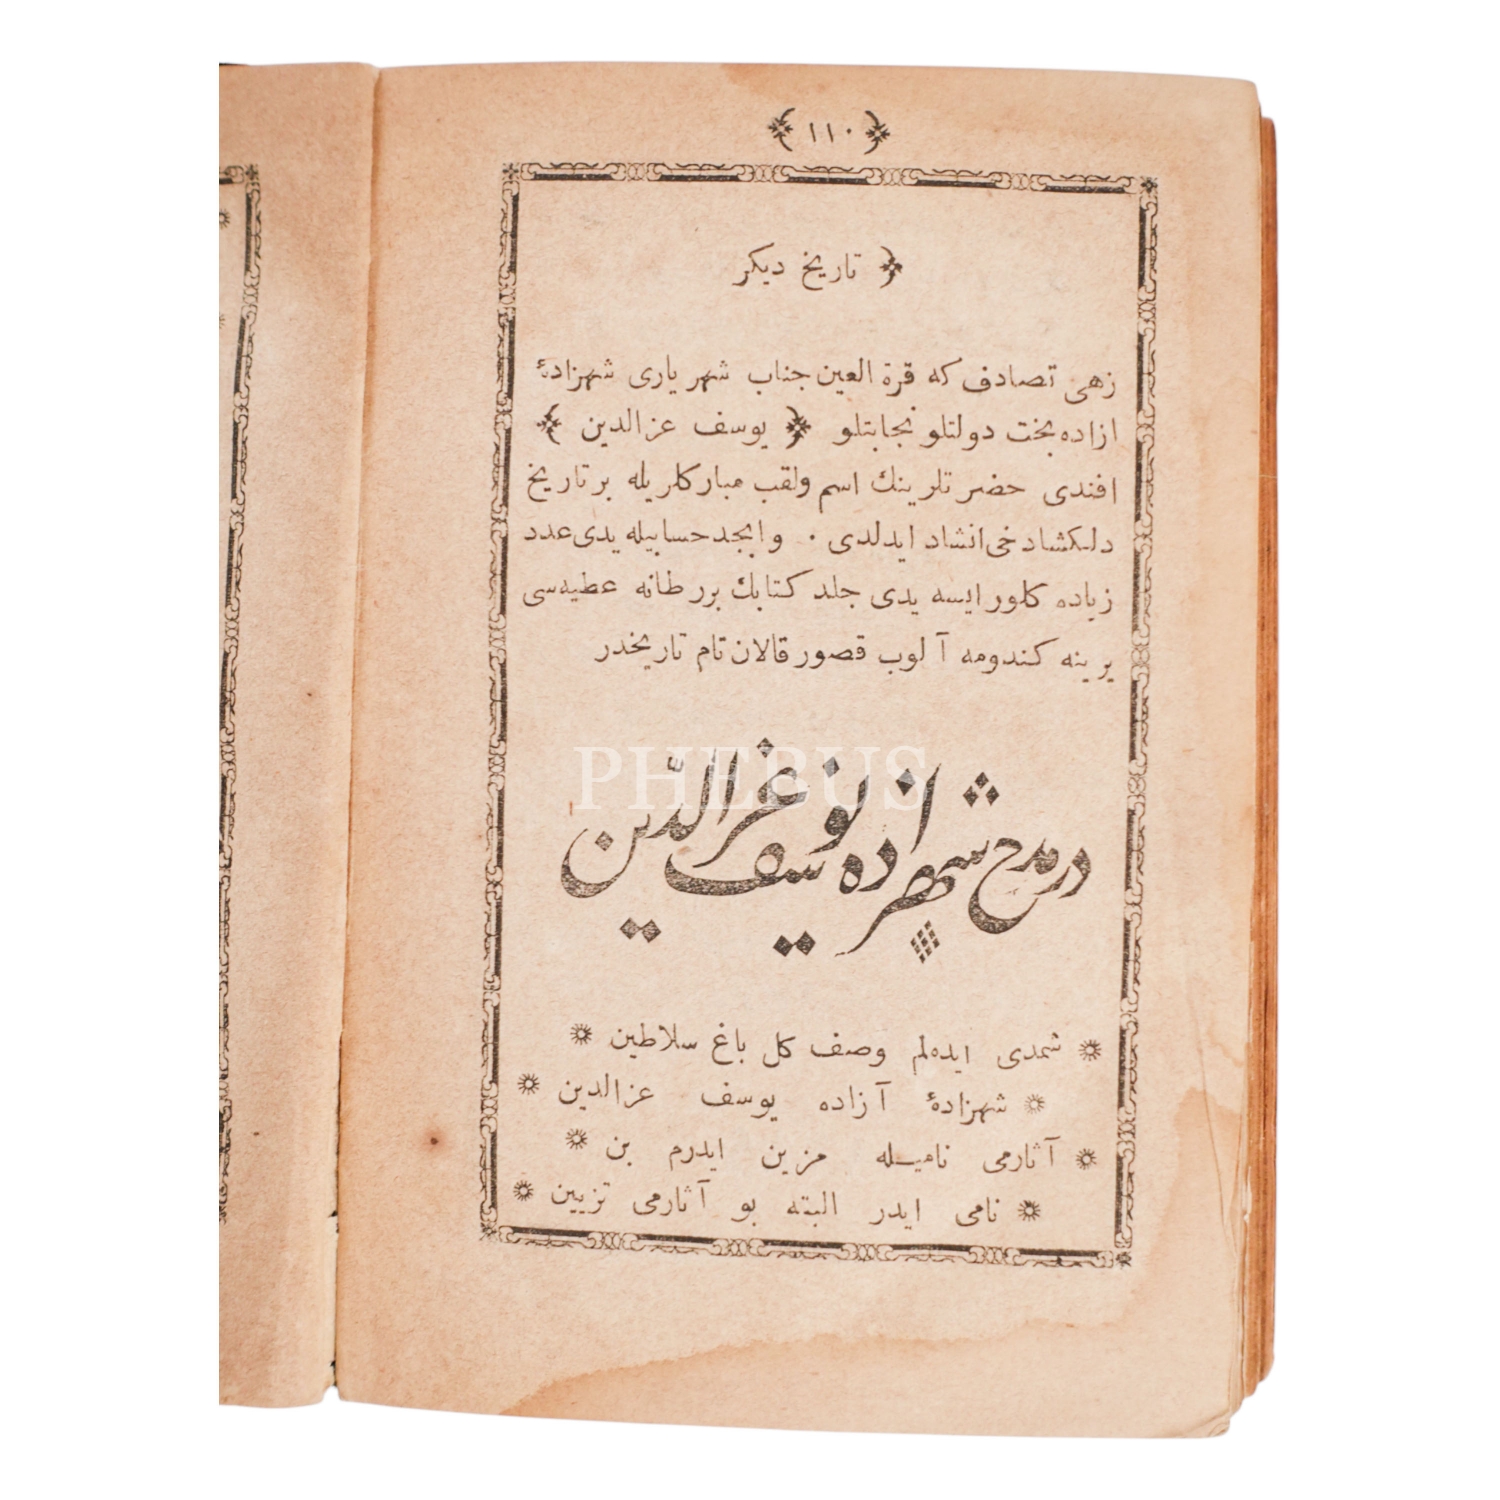 ﴿ ١١٠ ﴾
﴿ تاریخ دیكر
زهی تصادف كه قرة العین جناب شهریاری شهزادۀ
ازاده بخت دولتلو نجابتلو ﴿ یوسف عزالدین ﴾
افندی حضرتلرینك اسم ولقب مباركلریله بر تاریخ
دلكشاد خی انشاد ایدلدی ۰ وابجد حسابیله یدی عدد
زیاده كلور ایسه یدی جلد كتابك بررطانه عطیه‌سی
یرینه كندومه آلوب قصور قالان تام تاریخدر
در مدح شهزاده یوسف عزالدّین
شمدی ایده‌لم وصف كل باغ سلاطین
شهزادۀ آزاده یوسف عزالدین
آثارمی نامیله مزین ایدرم بن
نامی ایدر البته بو آثارمی تزیین
PHEBUS